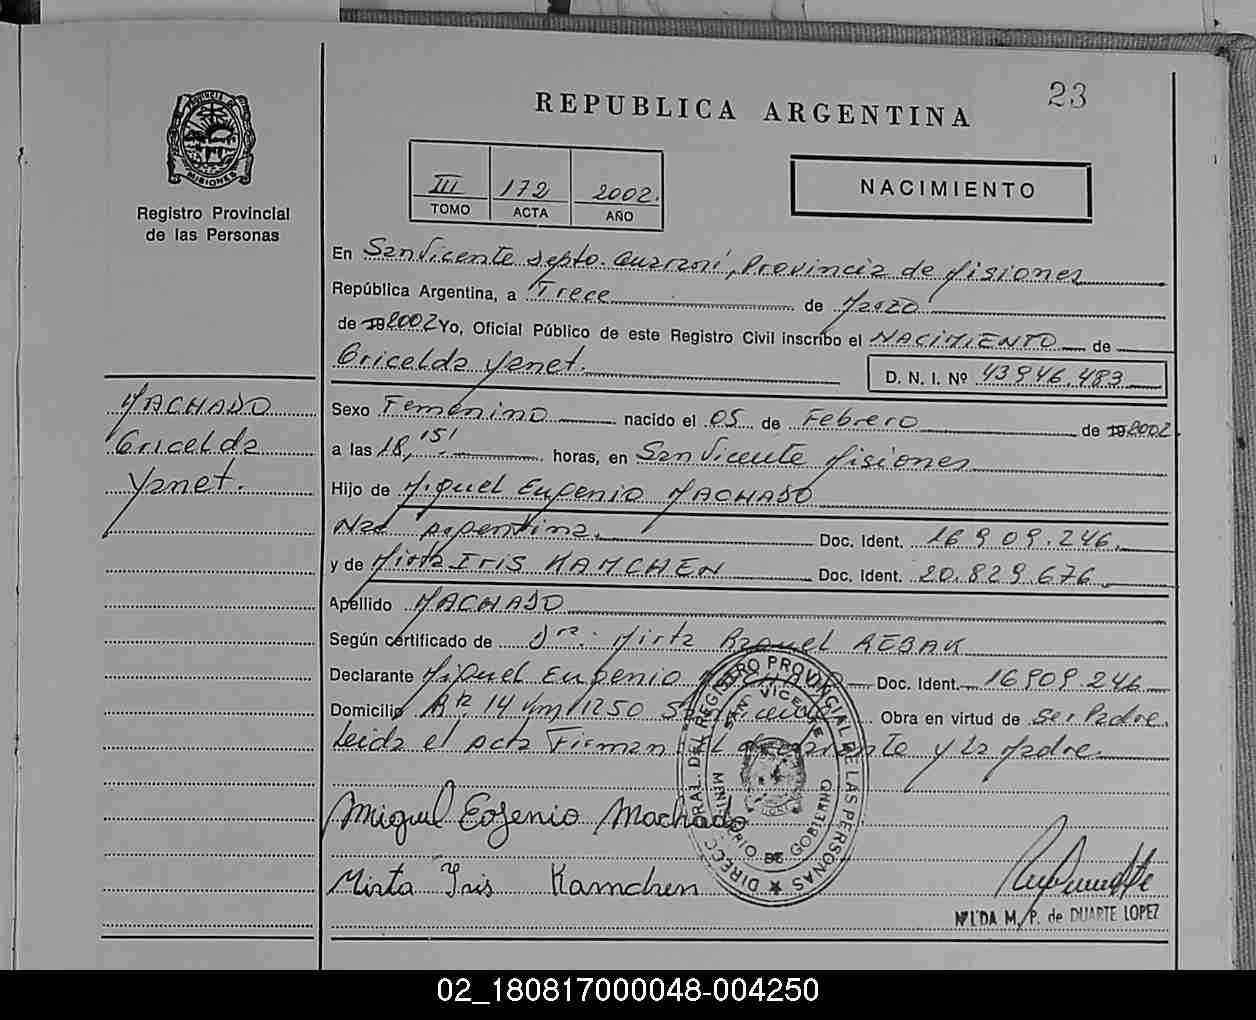 23
REPUBLICA ARGENTINA
PROVINCIA DE MISIONES
Registro Provincial
de las Personas
III 172 2002.
TOMO ACTA AÑO
NACIMIENTO
En San Vicente Depto. Guaraní, Provincia de Misiones
República Argentina, a Trece de Marzo
de 19 2002 Yo, Oficial Público de este Registro Civil inscribo el NACIMIENTO de
Gricelda Yanet. D. N. I. Nº 43946.483
MACHADO
Gricelda
Yanet.
Sexo Femenino nacido el 05 de Febrero de 19 2002
a las 18,15' horas, en San Vicente Misiones
Hijo de Miguel Eugenio MACHADO
Nac Argentina. Doc. Ident. 16909.246.
y de Mirta Iris KAMCHEN Doc. Ident. 20.829.676
Apellido MACHADO
Según certificado de Dra. Mirta Raquel
Declarante Miguel Eugenio MACHADO Doc. Ident. 16909.246
Domicilio R. 14 Km 1250 San Vicente Obra en virtud de ser Padre.
Leida el acta Firman el declarante y la Madre.
Miguel Eogenio Machado
Mirta Iris Kamchen
DIRECC. GRAL. DEL REGISTRO PROVINCIAL DE LAS PERSONAS
SAN VICENTE
MINISTERIO DE GOBIERNO
NILDA M. P. de DUARTE LOPEZ
02_180817000048-004250